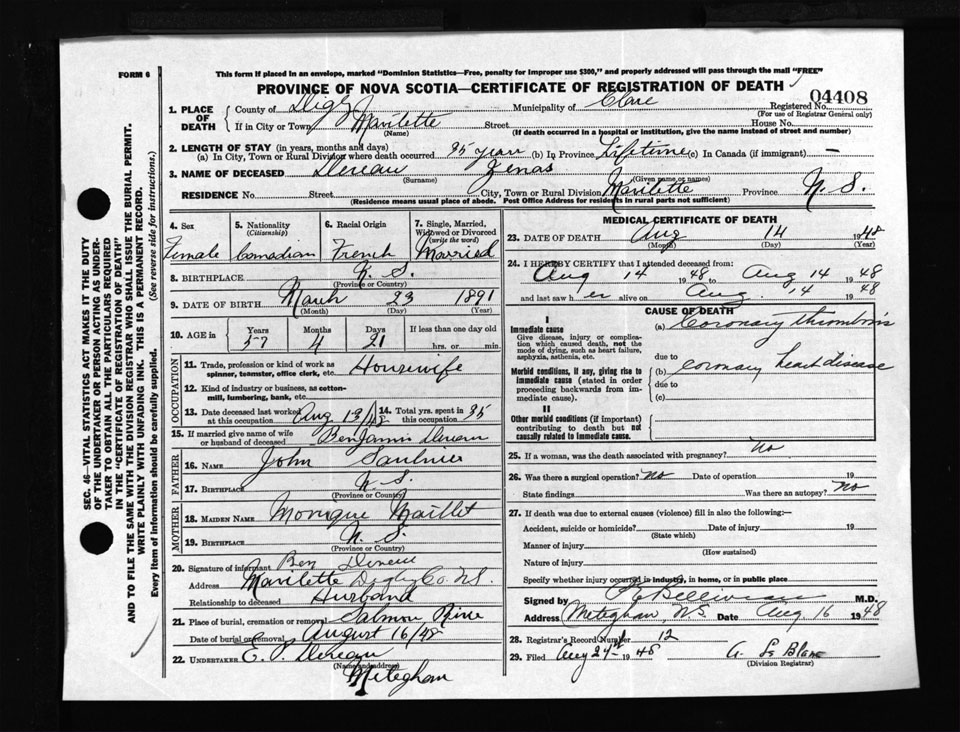 FORM 6
This form if placed in an envelope, marked "Dominion Statistics—Free, penalty for improper use $300," and properly addressed will pass through the mail "FREE"
PROVINCE OF NOVA SCOTIA—CERTIFICATE OF REGISTRATION OF DEATH
04408
1. PLACE OF DEATH County of Digby Municipality of Clare Registered No.
(For use of Registrar General only)
If in City or Town Mavilette Street House No.
(Name) (If death occurred in a hospital or institution, give the name instead of street and number)
2. LENGTH OF STAY (in years, months and days)
(a) In City, Town or Rural Division where death occurred 35 years (b) In Province Lifetime (c) In Canada (if immigrant) —
3. NAME OF DECEASED Deveau Zenas
(Surname) (Given name or names)
RESIDENCE No. Street City, Town or Rural Division Mavilette Province N. S.
(Residence means usual place of abode. Post Office Address for residents in rural parts not sufficient)
4. Sex 5. Nationality (Citizenship) 6. Racial Origin 7. Single, Married, Widowed or Divorced (write the word)
Female Canadian French Married
8. BIRTHPLACE N. S.
(Province or Country)
9. DATE OF BIRTH March 23 1891
(Month) (Day) (Year)
10. AGE in Years Months Days If less than one day old
57 4 21 hrs. or min.
OCCUPATION
11. Trade, profession or kind of work as spinner, teamster, office clerk, etc. Housewife
12. Kind of industry or business, as cotton-mill, lumbering, bank, etc.
13. Date deceased last worked at this occupation Aug 13/48 14. Total yrs. spent in this occupation 35
15. If married give name of wife or husband of deceased Benjamin Deveau
FATHER
16. NAME John Saulnier
17. BIRTHPLACE N. S.
(Province or Country)
MOTHER
18. MAIDEN NAME Monique Maillet
19. BIRTHPLACE N. S.
(Province or Country)
20. Signature of informant Ben Deveau
Address Mavilette Digby Co. N.S.
Relationship to deceased Husband
21. Place of burial, cremation or removal Salmon River
Date of burial or removal August 16/48
22. UNDERTAKER E. P. Deveau
(Name and address)
Meteghan
MEDICAL CERTIFICATE OF DEATH
23. DATE OF DEATH Aug 14 1948
(Month) (Day) (Year)
24. I HEREBY CERTIFY that I attended deceased from:
Aug 14 1948 Aug 14 1948
and last saw her alive on Aug. 14 1948
CAUSE OF DEATH
I
Immediate cause
Give disease, injury or complication which caused death, not the mode of dying, such as heart failure, asphyxia, asthenia, etc.
(a) Coronary thrombosis
due to
Morbid conditions, if any, giving rise to immediate cause (stated in order proceeding backwards from immediate cause).
(b) coronary heart disease
due to
(c)
II
Other morbid conditions (if important) contributing to death but not causally related to immediate cause.
25. If a woman, was the death associated with pregnancy? no
26. Was there a surgical operation? no Date of operation 19
State findings Was there an autopsy? no
27. If death was due to external causes (violence) fill in also the following:—
Accident, suicide or homicide? Date of injury 19
(State which)
Manner of injury
(How sustained)
Nature of injury
Specify whether injury occurred in industry, in home, or in public place
Signed by M.D.
Address Meteghan, N.S. Date Aug 16 1948
28. Registrar's Record Number 12
29. Filed Aug 24 1948 A. Le Blanc
(Division Registrar)
SEC. 46—VITAL STATISTICS ACT MAKES IT THE DUTY
OF THE UNDERTAKER OR PERSON ACTING AS UNDER-
TAKER TO OBTAIN ALL THE PARTICULARS REQUIRED
IN THE "CERTIFICATE OF REGISTRATION OF DEATH"
AND TO FILE THE SAME WITH THE DIVISION REGISTRAR WHO SHALL ISSUE THE BURIAL PERMIT.
WRITE PLAINLY WITH UNFADING INK. THIS IS A PERMANENT RECORD.
Every item of information should be carefully supplied. (See reverse side for instructions.)